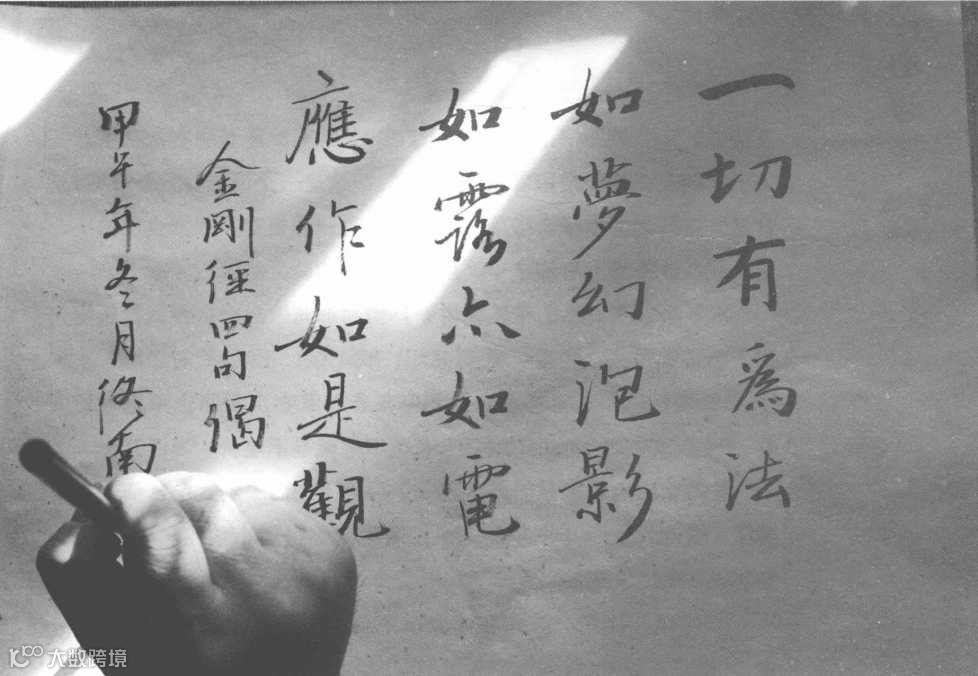 一切有為法
如夢幻泡影
如露亦如電
應作如是觀
金剛經四句偈
甲午年冬月終南
大数跨境